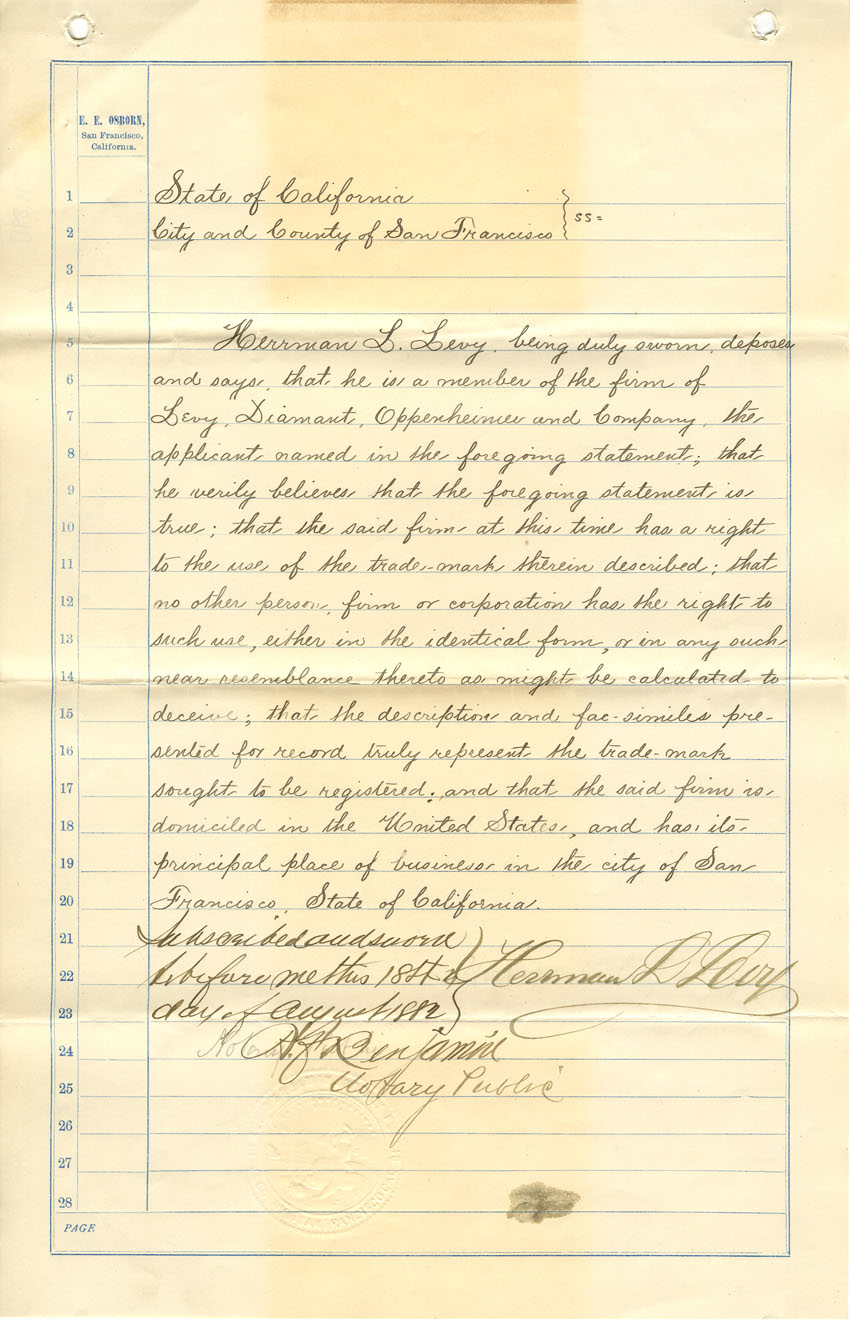 E. E. OSBORN,
San Francisco,
California.
1 State of California
2 City and County of San Francisco } ss=
3
4
5 Herrman L. Levy, being duly sworn, deposes
6 and says, that he is a member of the firm of
7 Levy, Diamant, Oppenheimer and Company, the
8 applicant named in the foregoing statement; that
9 he verily believes that the foregoing statement is
10 true; that the said firm at this time has a right
11 to the use of the trade-mark therein described; that
12 no other person, firm or corporation has the right to
13 such use, either in the identical form, or in any such
14 near resemblance thereto as might be calculated to
15 deceive; that the description and fac-similes pre-
16 sented for record truly represent the trade-mark
17 sought to be registered; and that the said firm is
18 domiciled in the United States, and has its
19 principal place of business in the city of San
20 Francisco, State of California.
21 Subscribed and sworn
22 to before me this 18th } Herrman L Levy
23 day of August 1882
24 Benjamin
25 Notary Public
26
27
28
PAGE